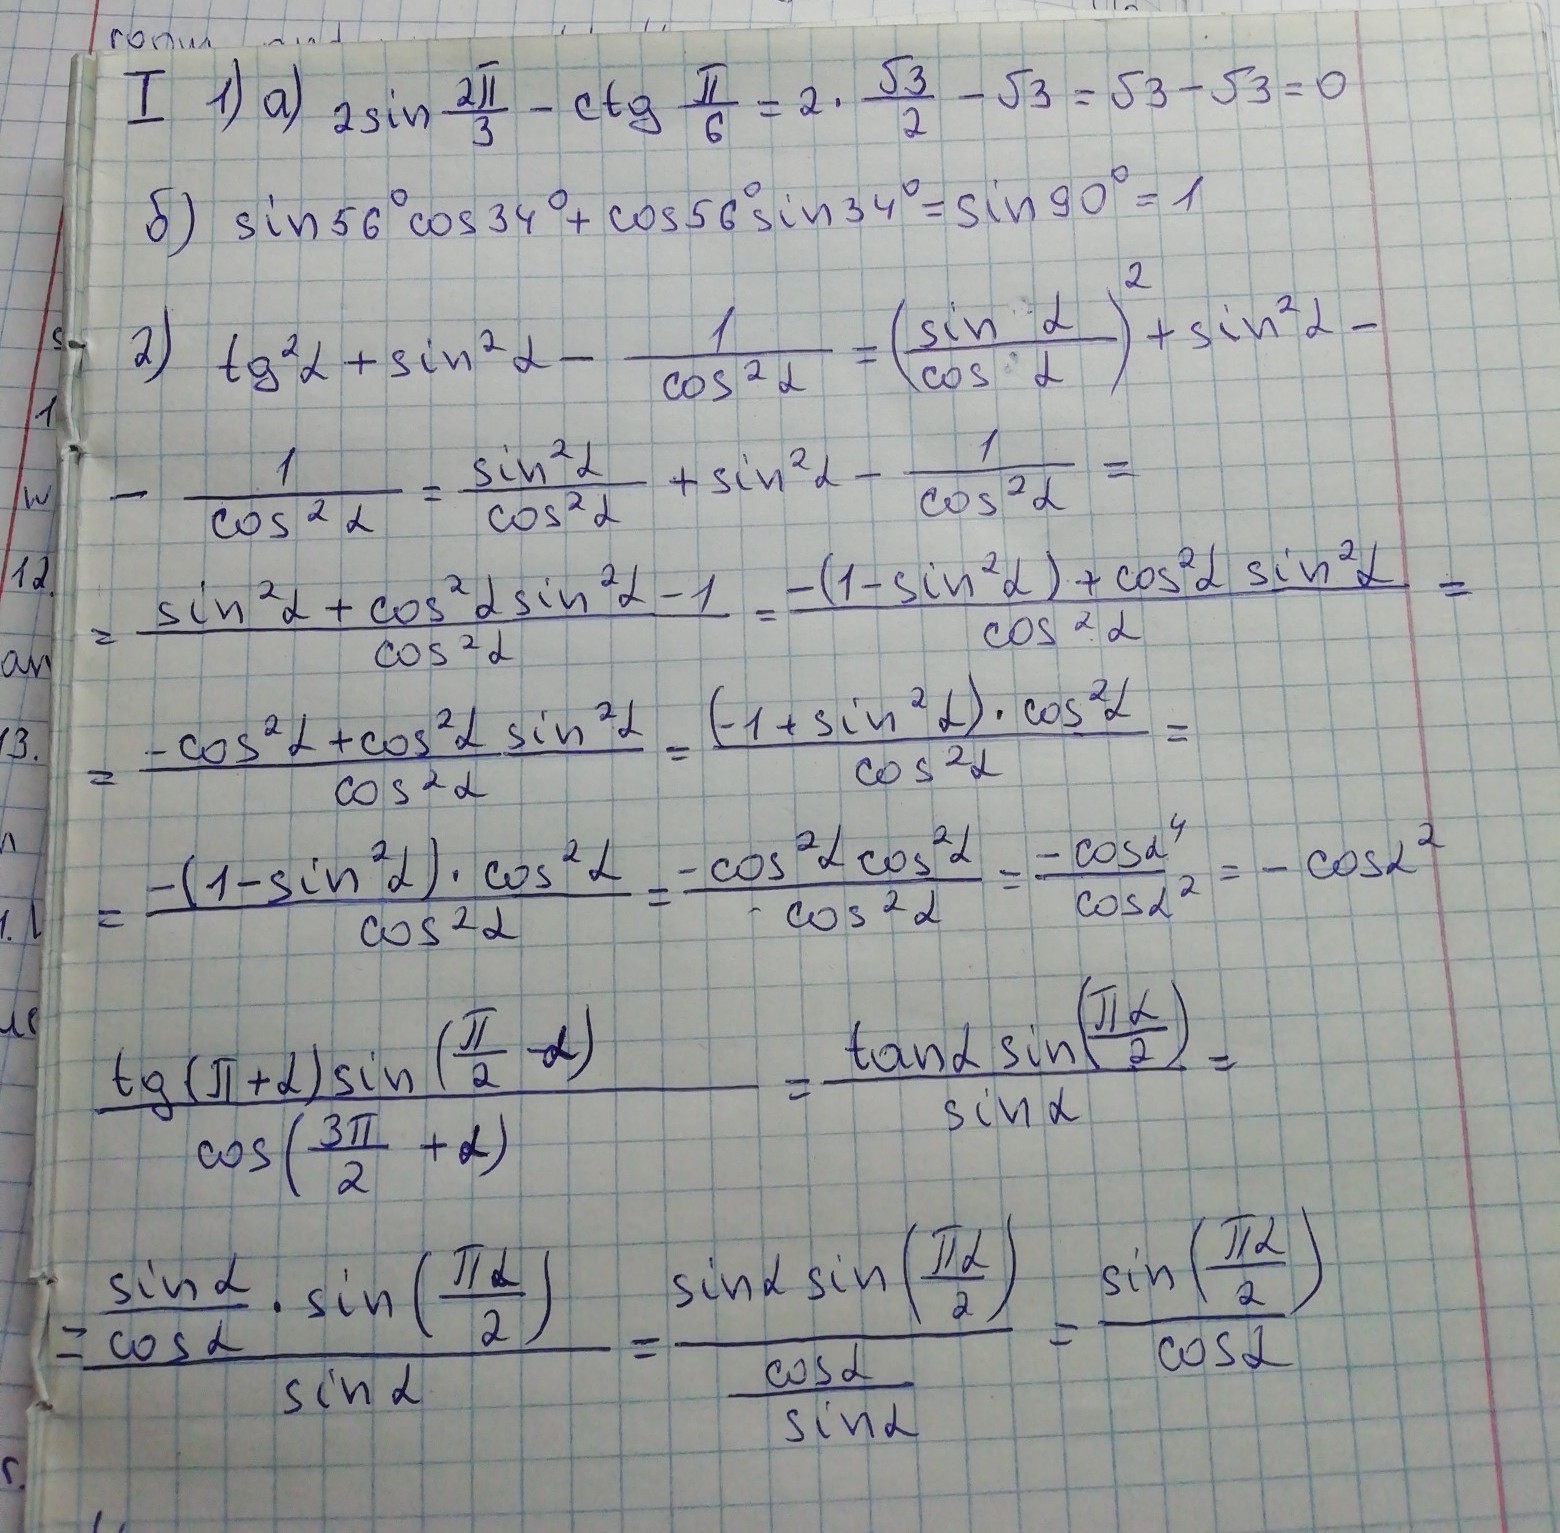 I 1) а) 2sin 2π/3 - ctg π/6 = 2 · √3/2 - √3 = √3 - √3 = 0
б) sin56°cos34° + cos56°sin34° = sin90° = 1
2) tg²α + sin²α - 1/cos²α = (sin α/cos α)² + sin²α -
- 1/cos²α = sin²α/cos²α + sin²α - 1/cos²α =
= (sin²α + cos²α sin²α - 1)/cos²α = (-(1-sin²α) + cos²α sin²α)/cos²α =
= (-cos²α + cos²α sin²α)/cos²α = ((-1 + sin²α) · cos²α)/cos²α =
= (-(1-sin²α) · cos²α)/cos²α = (-cos²α cos²α)/cos²α = -cosα⁴/cosα² = - cosα²
(tg(π+α) sin(π/2 - α))/cos(3π/2 + α) = (tanα sin(πα/2))/sinα =
= (sinα/cosα · sin(πα/2))/sinα = (sinα sin(πα/2))/(cosα/sinα) = sin(πα/2)/cosα